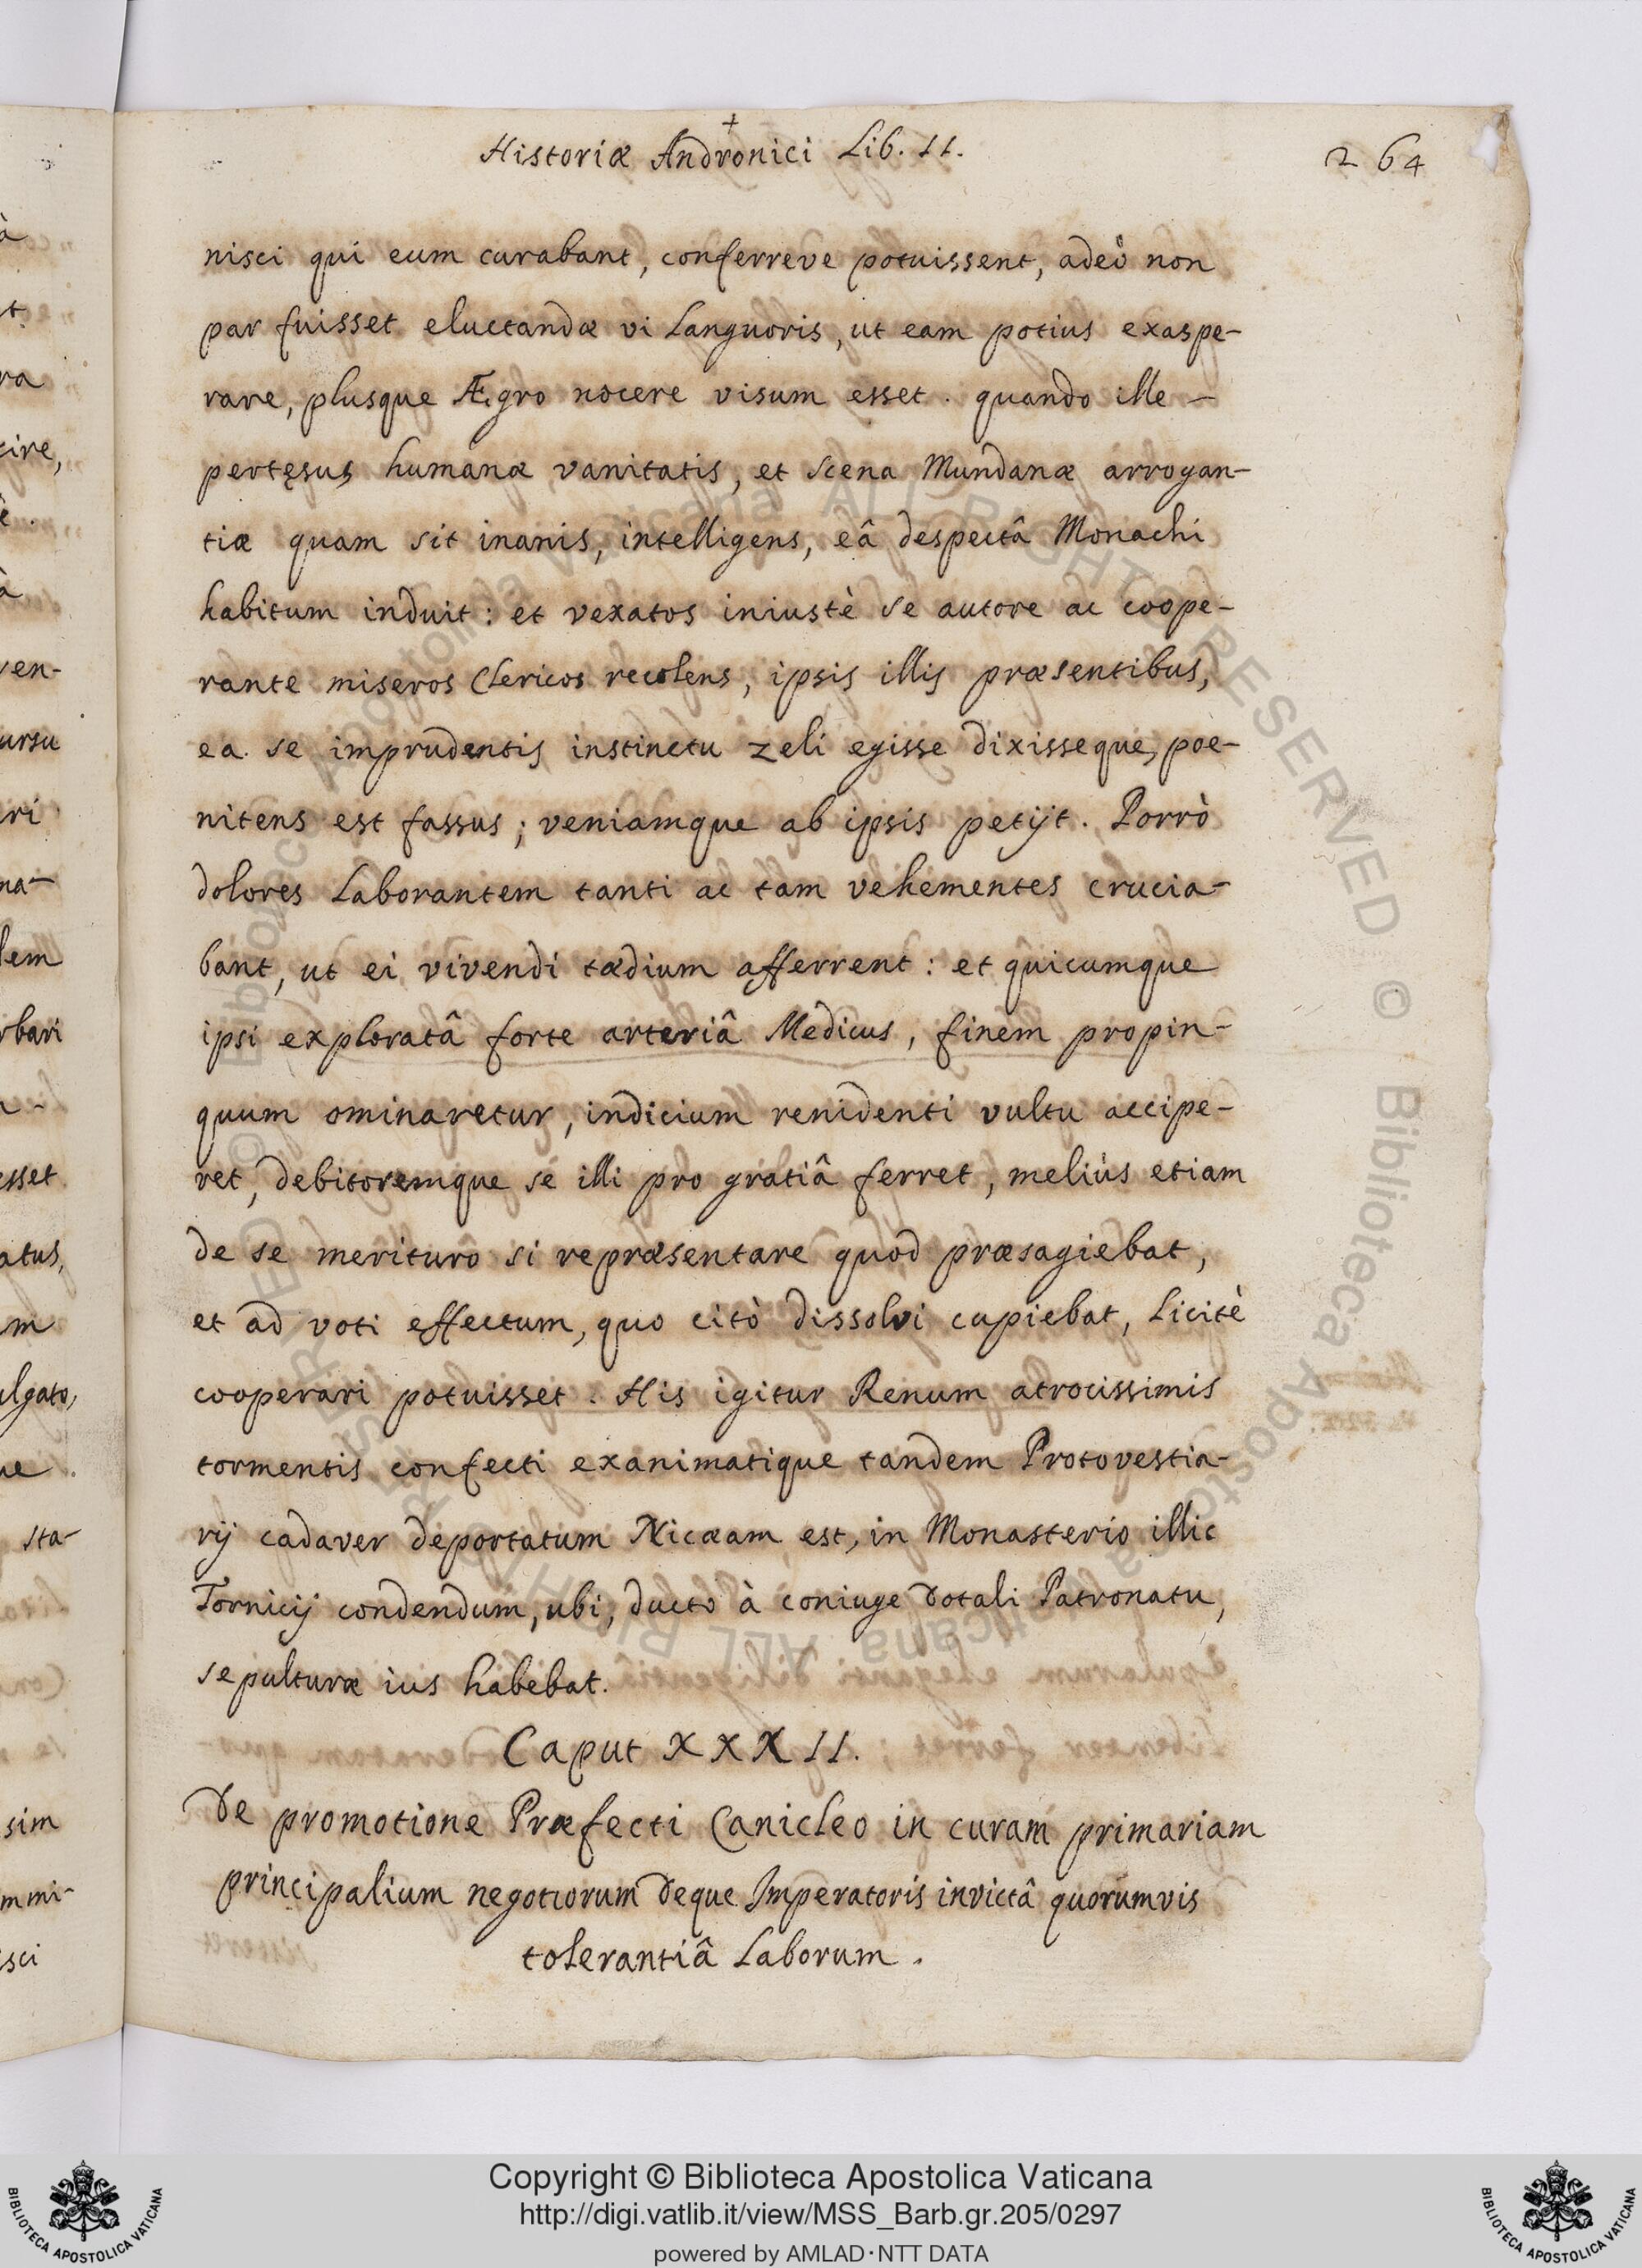 +
Historiæ Andronici Lib. II.
264
nisci qui eum curabant, conferreve potuissent, adeò non
par fuisset eluctandæ vi Languoris, ut eam potius exaspe-
rare, plusque Ægro nocere visum esset. quando ille -
pertęsus humanæ vanitatis, et scena Mundanæ arrogan-
tiæ quam sit inanis, intelligens, eâ despectâ Monachi
habitum induit: et vexatos iniustè se autore ac coope-
rante miseros Clericos recolens, ipsis illis præsentibus,
ea se imprudentis instinctu zeli egisse dixisseque, poe-
nitens est fassus; veniamque ab ipsis petijt. Porrò
dolores Laborantem tanti ac tam vehementes crucia-
bant, ut ei vivendi tædium afferrent: et quicumque
ipsi exploratâ forte arteriâ Medicus, finem propin-
quum ominaretur, indicium renidenti vultu accipe-
ret, debitoremque se illi pro gratiâ ferret, meliùs etiam
de se merituro si repræsentare quod præsagiebat,
et ad voti effectum, quo citò dissolvi cupiebat, Licitè
cooperari potuisset. His igitur Renum atrocissimis
tormentis confecti exanimatique tandem Protovestia-
rij cadaver deportatum Nicæam est, in Monasterio illic
Tornicij condendum, ubi, ducto à coniuge dotali Patronatu,
sepulturæ ius habebat.
Caput XXXII.
De promotione Præfecti Canicleo in curam primariam
principalium negotiorum deque Imperatoris invictâ quorumvis
tolerantiâ Laborum.
Copyright © Biblioteca Apostolica Vaticana
http://digi.vatlib.it/view/MSS_Barb.gr.205/0297
powered by AMLAD·NTT DATA
BIBLIOTECA APOSTOLICA VATICANA
BIBLIOTECA APOSTOLICA VATICANA